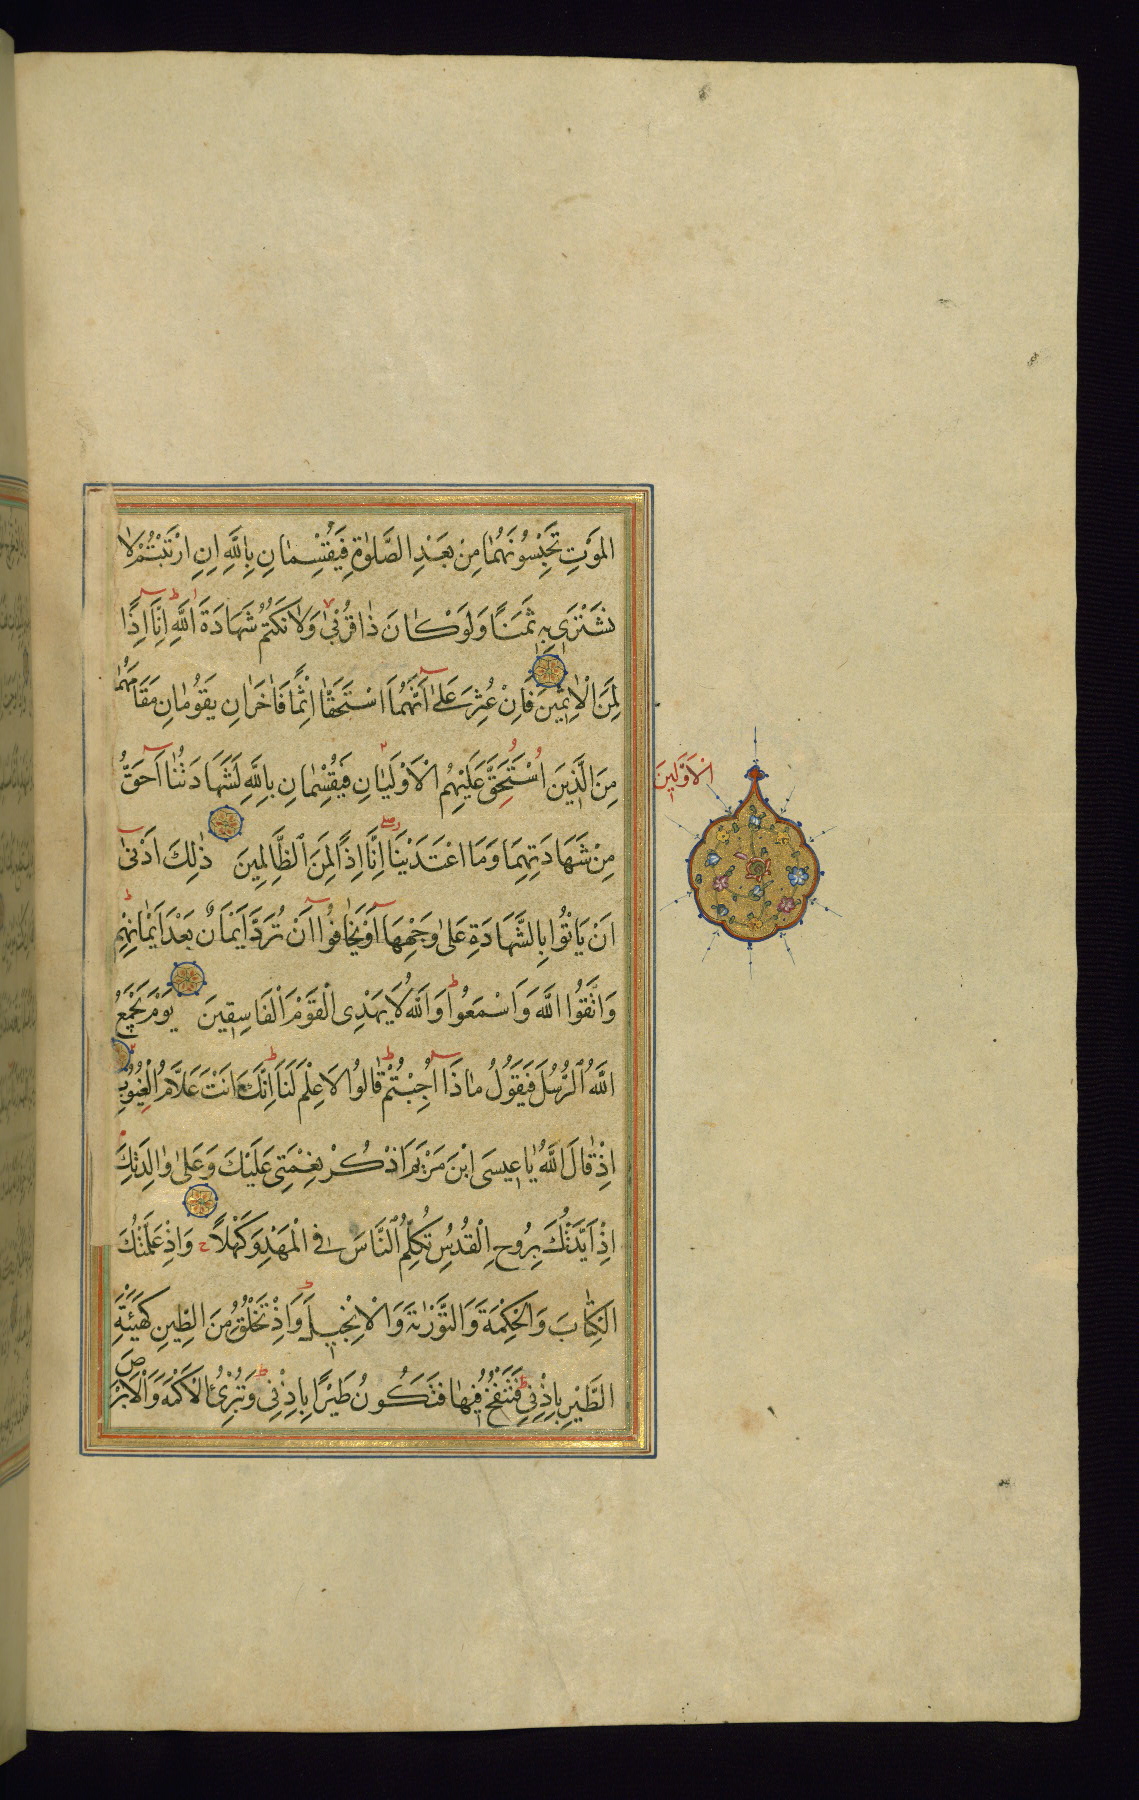 الموَْتِ تَحْبِسُونَهُمَا مِنْ بَعْدِ الصَّلٰوةِ فَيُقْسِمَانِ بِاللَّهِ اِنِ ارْتَبْتُمْ لَا
نَشْتَرِي بِهِ ثَمَنًا وَلَوْ كَانَ ذَا قُرْبٰى وَلَا نَكْتُمُ شَهَادَةَ اللَّهِ اِنَّا اِذًا
لَمِنَ الْاٰثِمِينَ فَاِنْ عُثِرَ عَلٰى اَنَّهُمَا اسْتَحَقَّا اِثْمًا فَاٰخَرَانِ يَقُومَانِ مَقَامَهُمَا
مِنَ الَّذِينَ اسْتُحِقَّ عَلَيْهِمُ الْاَوْلَيَانِ فَيُقْسِمَانِ بِاللَّهِ لَشَهَادَتُنَا اَحَقُّ
الْاَوَّلِينَ
مِنْ شَهَادَتِهِمَا وَمَا اعْتَدَيْنَا اِنَّا اِذًا لَمِنَ الظَّالِمِينَ ذٰلِكَ اَدْنٰى
اَنْ يَاْتُوا بِالشَّهَادَةِ عَلٰى وَجْهِهَا اَوْ يَخَافُوا اَنْ تُرَدَّ اَيْمَانٌ بَعْدَ اَيْمَانِهِمْ
وَاتَّقُوا اللَّهَ وَاسْمَعُوا وَاللَّهُ لَا يَهْدِى الْقَوْمَ الْفَاسِقِينَ يَوْمَ يَجْمَعُ
اللَّهُ الرُّسُلَ فَيَقُولُ مَاذَا اُجِبْتُمْ قَالُوا لَا عِلْمَ لَنَا اِنَّكَ اَنْتَ عَلَّامُ الْغُيُوبِ
اِذْ قَالَ اللَّهُ يَا عِيسَى ابْنَ مَرْيَمَ اذْكُرْ نِعْمَتِى عَلَيْكَ وَعَلٰى وَالِدَتِكَ
اِذْ اَيَّدْتُكَ بِرُوحِ الْقُدُسِ تُكَلِّمُ النَّاسَ فِى الْمَهْدِ وَكَهْلًا وَاِذْ عَلَّمْتُكَ
الْكِتَابَ وَالْحِكْمَةَ وَالتَّوْرٰيةَ وَالْاِنْجِيلَ وَاِذْ تَخْلُقُ مِنَ الطِّينِ كَهَيْئَةِ
الطَّيْرِ بِاِذْنِى فَتَنْفُخُ فِيهَا فَتَكُونُ طَيْرًا بِاِذْنِى وَتُبْرِئُ الْاَكْمَهَ وَالْاَبْرَصَ